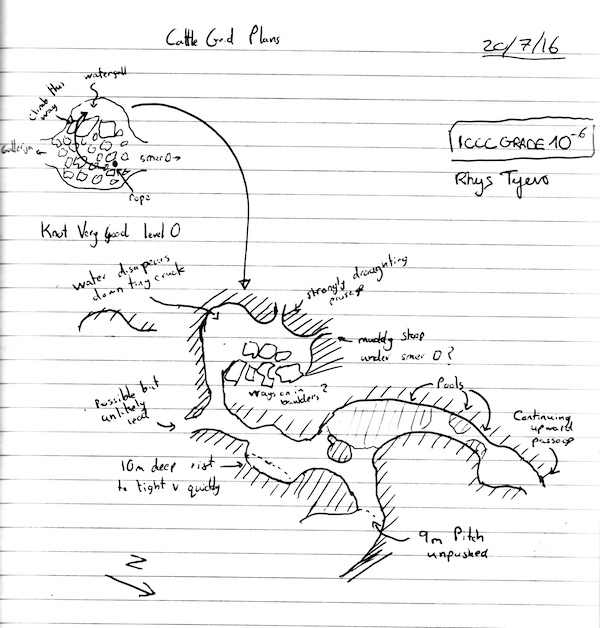 Cattle Grid Plans
20/7/16
waterfall
Climb this
way
smer 0 →
rope
ICCC GRADE 10⁻⁶
Rhys Tyers
Knot Very Good Level 0
water disappears
down tiny crack
strongly draughting
passage
muddy slope
under smer 0?
ways on in
boulders?
Possible but
unlikely
lead
Pools
Continuing
upward
passage
10m deep rift
to tight v quickly
9m Pitch
unpushed
N